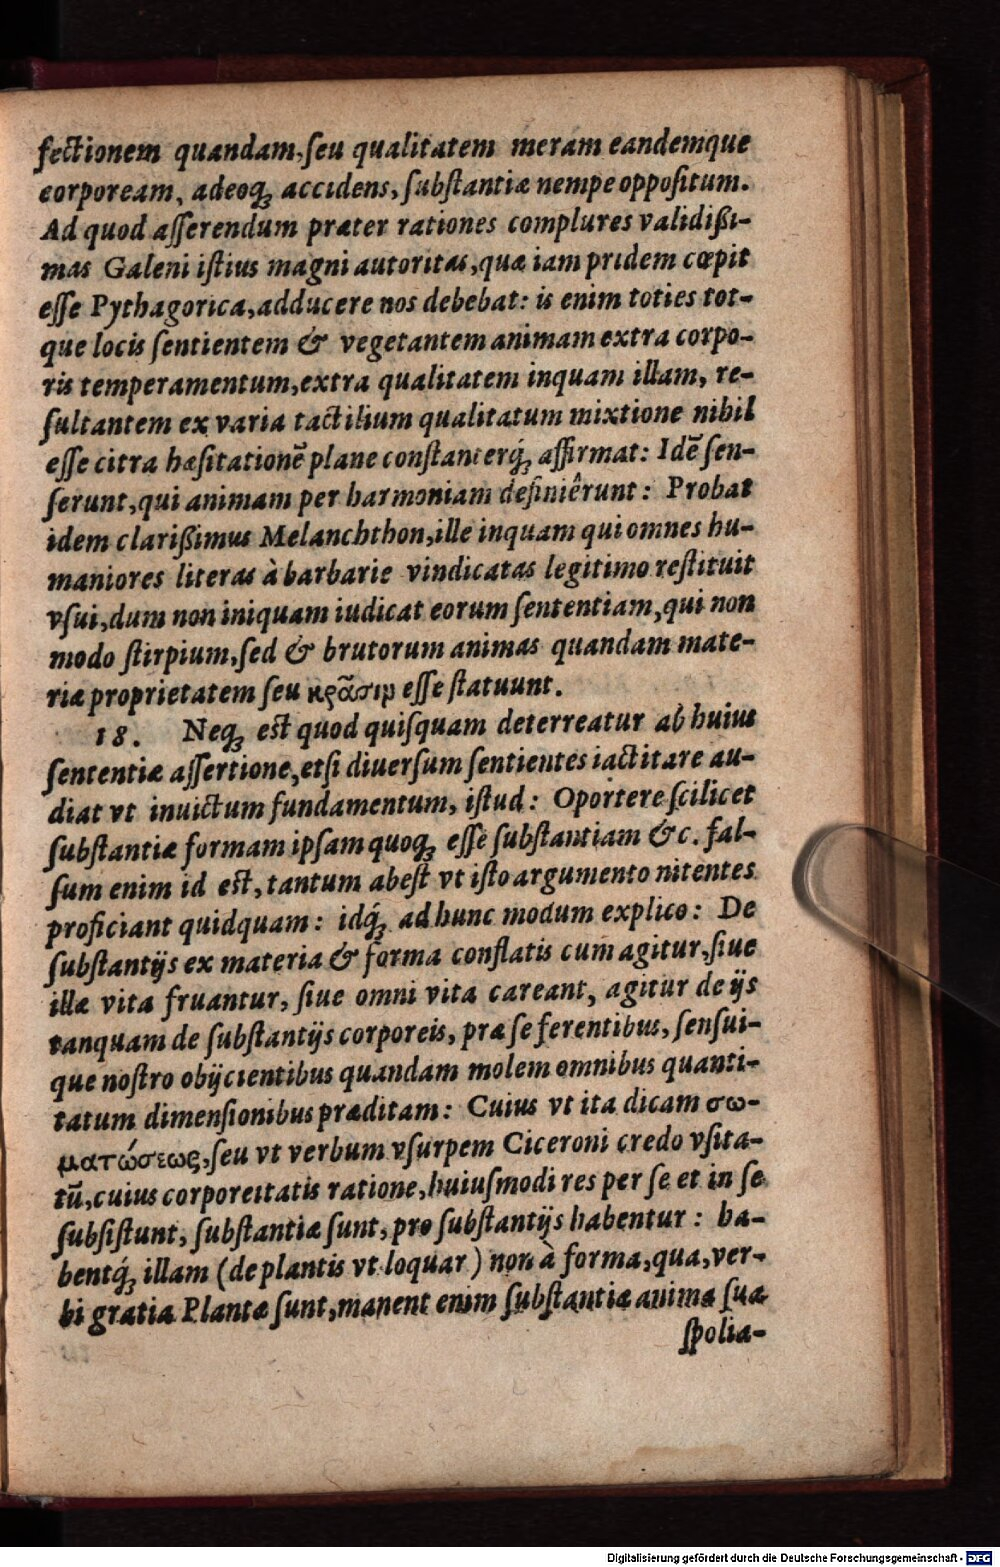 fectionem quandam, ſeu qualitatem meram eandemque
corpoream, adeoq́ʒ accidens, ſubſtantiæ nempe oppoſitum.
Ad quod aſſerendum præter rationes complures validißi-
mas Galeni iſtius magni autoritas, quæ iam pridem cœpit
eſſe Pythagorica, adducere nos debebat: is enim toties tot-
que locis ſentientem & vegetantem animam extra corpo-
ris temperamentum, extra qualitatem inquam illam, re-
ſultantem ex varia tactilium qualitatum mixtione nihil
eſſe citra hæſitationẽ plane conſtanterq́ʒ affirmat: Idẽ ſen-
ſerunt, qui animam per harmoniam definiêrunt: Probat
idem clarißimus Melanchthon, ille inquam qui omnes hu-
maniores literas à barbarie vindicatas legitimo reſtituit
vſui, dum non iniquam iudicat eorum ſententiam, qui non
modo ſtirpium, ſed & brutorum animas quandam mate-
riæ proprietatem ſeu κρᾶσιν eſſe ſtatuunt.
18. Neqʒ est quod quiſquam deterreatur ab huius
ſententiæ aſſertione, etſi diuerſum ſentientes iactitare au-
diat vt inuictum fundamentum, iſtud: Oportere ſcilicet
ſubſtantiæ formam ipſam quoqʒ eſſe ſubſtantiam &c. fal-
ſum enim id est, tantum abest vt iſto argumento nitentes
proficiant quidquam: idq́ʒ ad hunc modum explico: De
ſubſtantijs ex materia & forma conflatis cum agitur, ſiue
illæ vita fruantur, ſiue omni vita careant, agitur de ijs
tanquam de ſubſtantijs corporeis, præ ſe ferentibus, ſenſui-
que noſtro obijcientibus quandam molem omnibus quanti-
tatum dimenſionibus præditam: Cuius vt ita dicam σω-
ματώσεως, ſeu vt verbum vſurpem Ciceroni credo vſita-
tũ, cuius corporeitatis ratione, huiuſmodi res per ſe et in ſe
ſubſiſtunt, ſubſtantiæ ſunt, pro ſubſtantijs habentur: ha-
bentq́ʒ illam (de plantis vt loquar) non à forma, qua, ver-
bi gratia Plantæ ſunt, manent enim ſubſtantiæ anima ſua
ſpolia-
Digitalisierung gefördert durch die Deutsche Forschungsgemeinschaft - DFG